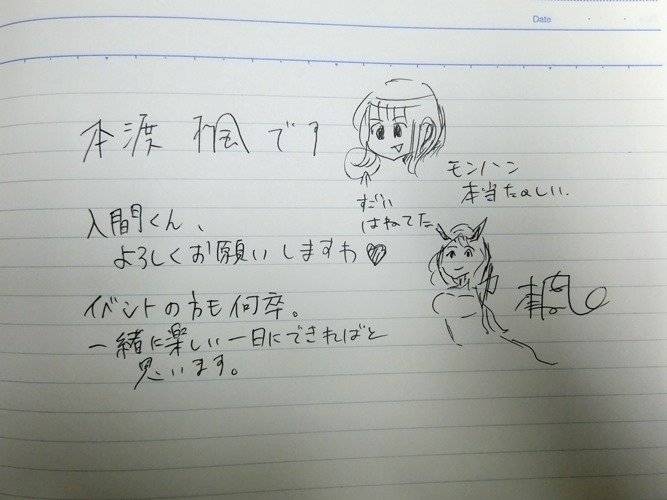 Date
本渡 楓です
すごい
はねてた
モンハン
本当たのしい.
入間くん、
よろしくお願いしますわ♥
イベントの方も何卒。
一緒に楽しい一日にできればと
思います。